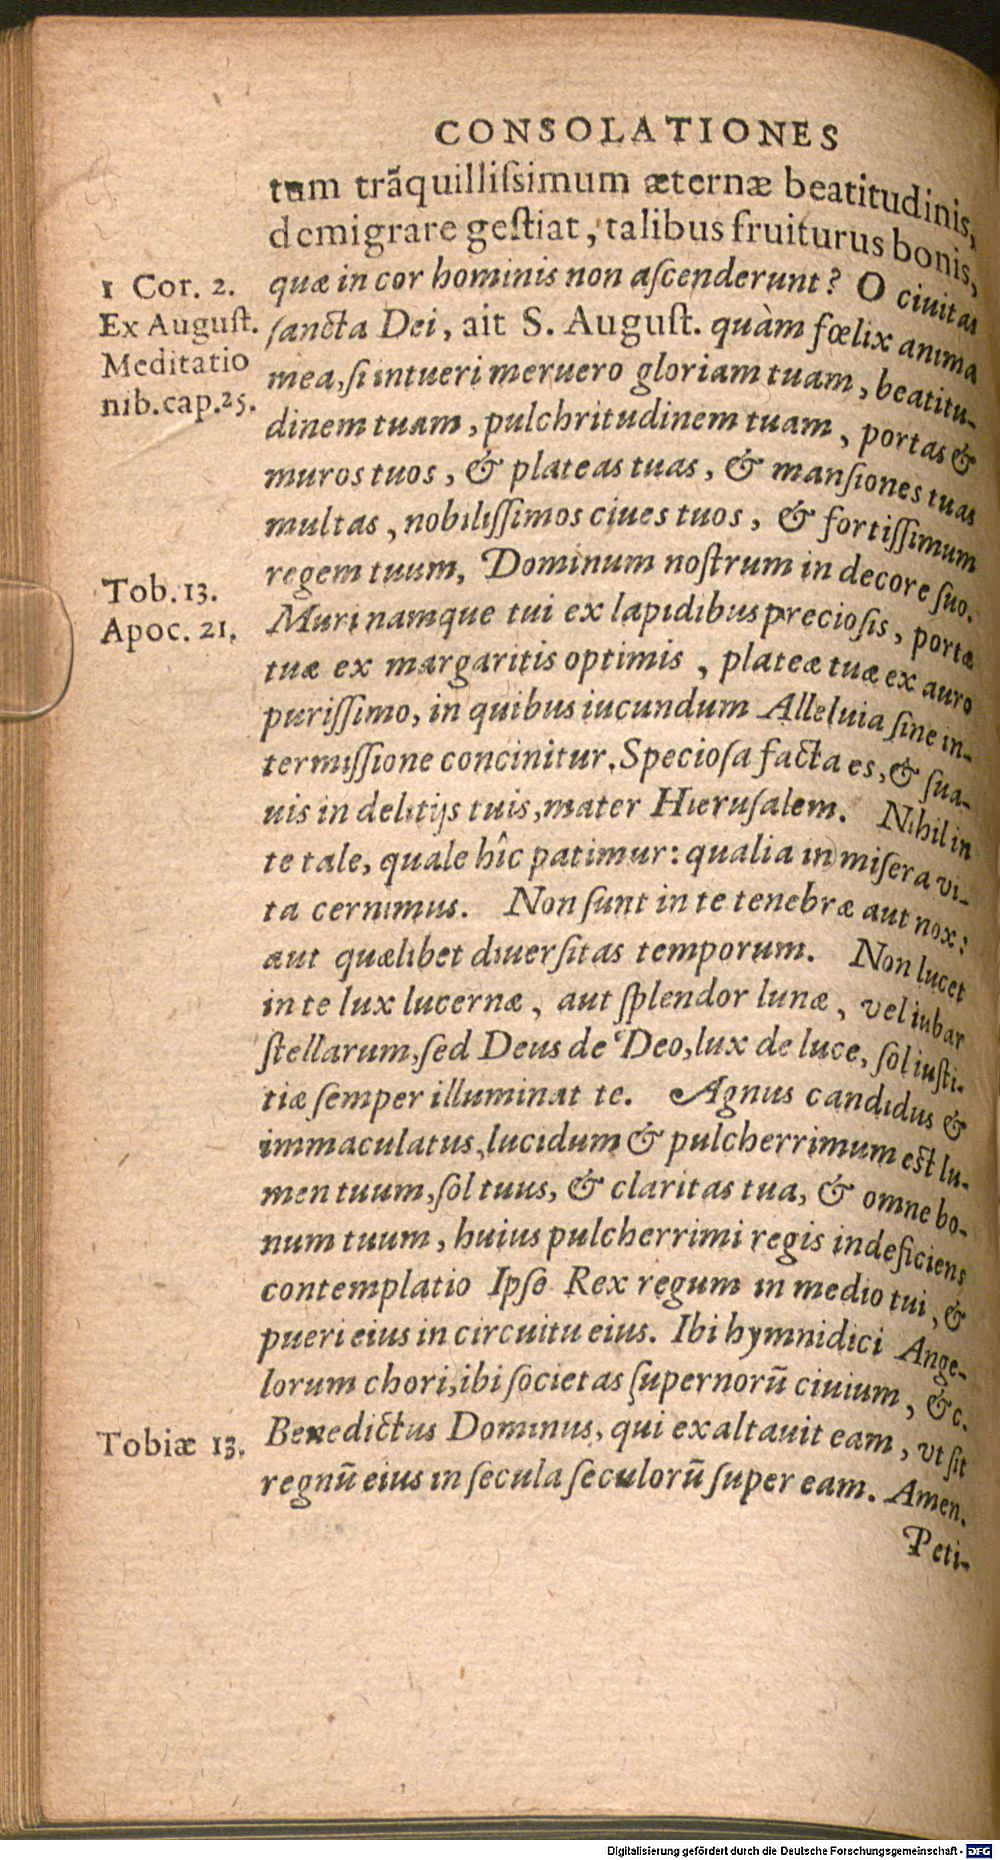 CONSOLATIONES
tum trãquillissimum æternæ beatitudinis,
demigrare gestiat, talibus fruiturus bonis,
quæ in cor hominis non ascenderunt? O ciuitas
sancta Dei, ait S. August. quàm fœlix anima
mea, si intueri meruero gloriam tuam, beatitu-
dinem tuam, pulchritudinem tuam, portas &
muros tuos, & plateas tuas, & mansiones tuas
multas, nobilissimos ciues tuos, & fortissimum
regem tuum, Dominum nostrum in decore suo.
Muri namque tui ex lapidibus preciosis, portæ
tuæ ex margaritis optimis, plateæ tuæ ex auro
purissimo, in quibus iucundum Alleluia sine in-
termissione concinitur. Speciosa facta es, & sua-
uis in delitijs tuis, mater Hierusalem. Nihil in
te tale, quale hîc patimur: qualia in misera vi-
ta cernimus. Non sunt in te tenebræ aut nox:
aut quælibet diuersitas temporum. Non lucet
in te lux lucernæ, aut splendor lunæ, vel iubar
stellarum, sed Deus de Deo, lux de luce, sol iusti-
tiæ semper illuminat te. Agnus candidus &
immaculatus, lucidum & pulcherrimum est lu-
men tuum, sol tuus, & claritas tua, & omne bo-
num tuum, huius pulcherrimi regis indeficiens
contemplatio Ipse Rex regum in medio tui, &
pueri eius in circuitu eius. Ibi hymnidici Ange-
lorum chori, ibi societas supernorũ ciuium, &c.
Benedictus Dominus, qui exaltauit eam, vt sit
regnũ eius in secula seculorũ super eam. Amen.
Peti-
1 Cor. 2.
Ex August.
Meditatio
nib. cap. 25.
Tob. 13.
Apoc. 21.
Tobiæ 13.
Digitalisierung gefördert durch die Deutsche Forschungsgemeinschaft - DFG